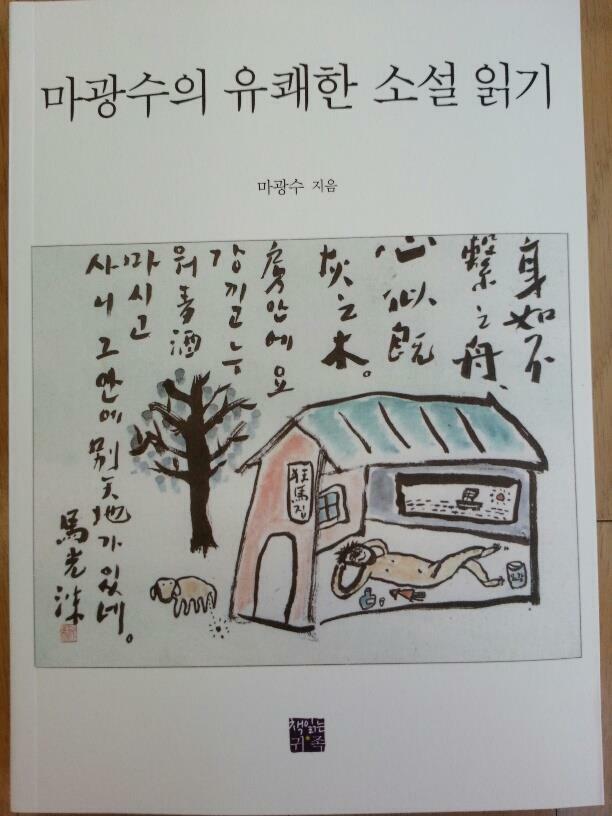 마광수의 유쾌한 소설 읽기
마광수 지음
身如不
繫之舟、
心似既
灰之木。
房안에 요
강 끼고 누
워
마시고
사니 그 안에 別天地가 있네。
馬光洙
狂馬집
요강
책읽는
귀족